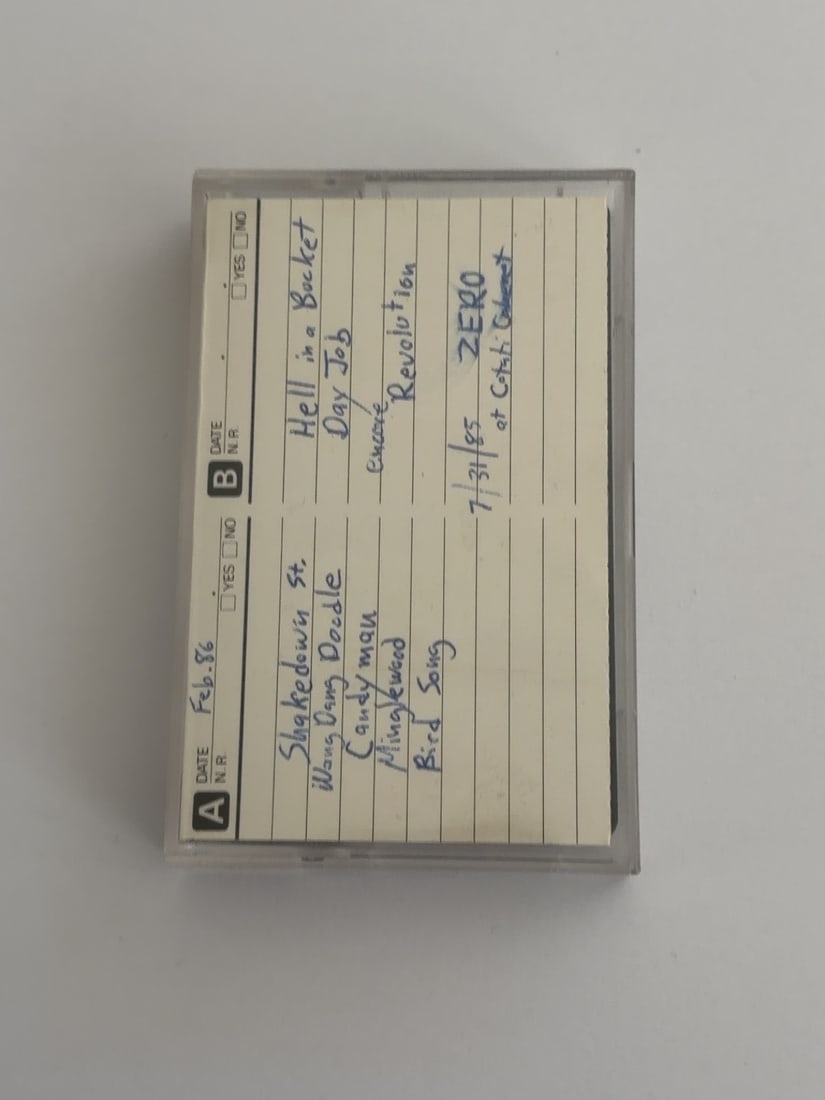 A DATE Feb. 86
N.R. YES NO
Shakedown St.
Wang Dang Doodle
Candyman
Minglewood
Bird Song
B DATE
N.R. YES NO
Hell in a Bucket
Day Job
encore
Revolution
7/31/85 ZERO
at Cotati Cabaret